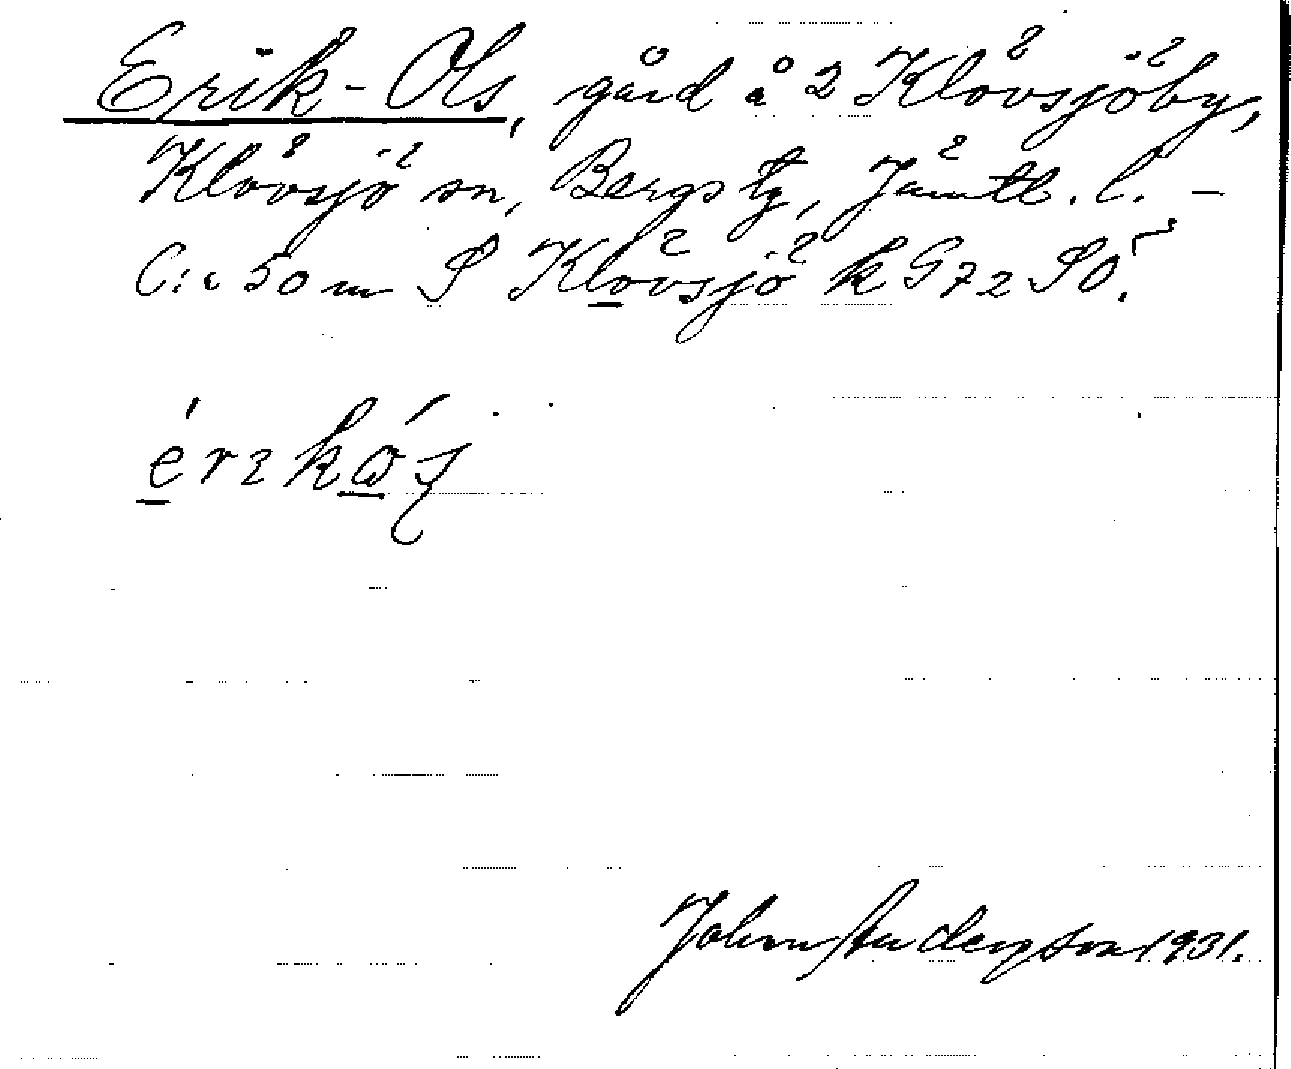 Erik-Ols, gård å 2 Klövsjöby,
Klövsjö sn, Bergs tg, Jämtl. l. –
C:a 50 m S Klövsjö k G72 SO.
érzkás
John Andersson 1931.